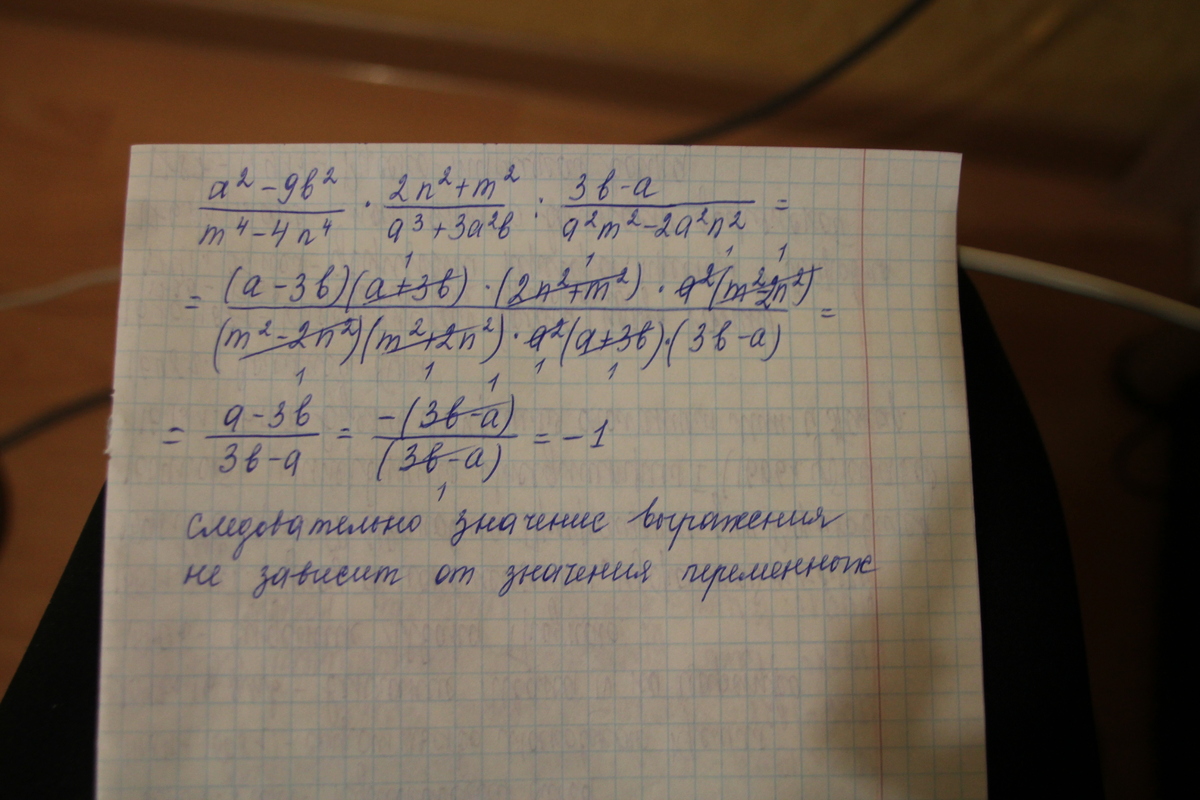 a² - 9b² / m⁴ - 4n⁴ · 2n² + m² / a³ + 3a²b : 3b - a / a²m² - 2a²n² =
= (a - 3b)(a + 3b) · (2n² + m²) · a²(m² - 2n²) / (m² - 2n²)(m² + 2n²) · a²(a + 3b) · (3b - a) =
= a - 3b / 3b - a = -(3b - a) / (3b - a) = -1
следовательно значение выражения
не зависит от значения переменных